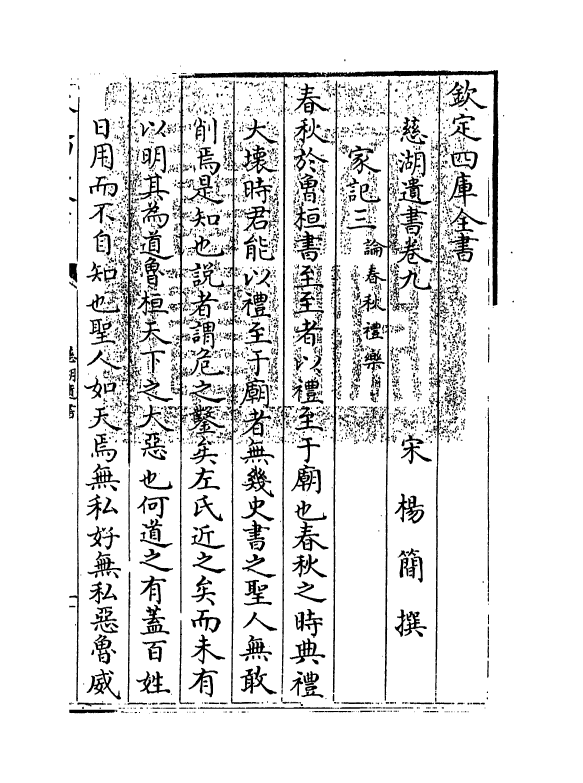 欽定四庫全書
慈湖遺書卷九
宋 楊簡 撰
家記三 論春秋禮樂
春秋於魯桓書至至者以禮至于廟也春秋之時典禮
大壞時君能以禮至于廟者無幾史書之聖人無敢
削焉是知也説者謂危之鑿矣左氏近之矣而未有
以明其為道魯桓天下之大惡也何道之有蓋百姓
日用而不自知也聖人如天焉無私好無私惡魯威
慈湖遺書
一